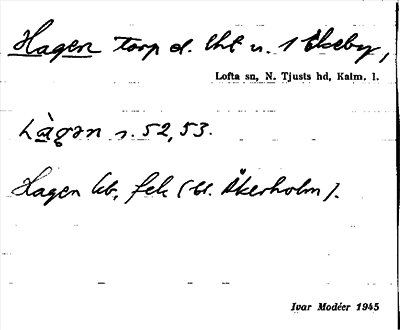 Hagen torp o. lht u. 1 Ekeby,
Lofta sn, N. Tjusts hd, Kalm. l.
hàgən s. 52, 53.
Hagen kb, fek (bl. Åkerholm).
Ivar Modéer 1945